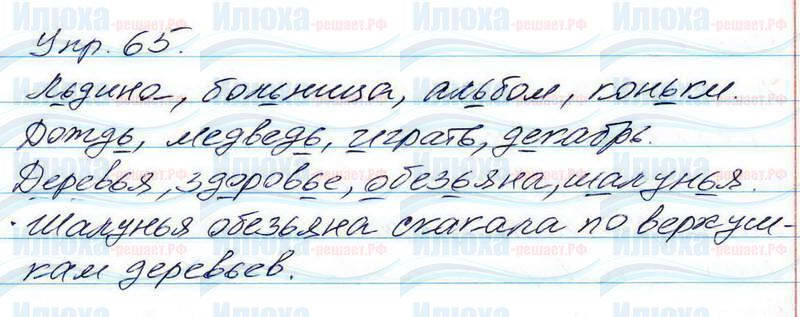 Упр. 65.
Льдина, больница, альбом, коньки.
Дождь, медведь, играть, декабрь.
Деревья, здоровье, обезьяна, шалунья.
Шалунья обезьяна скакала по верхуш-
кам деревьев.